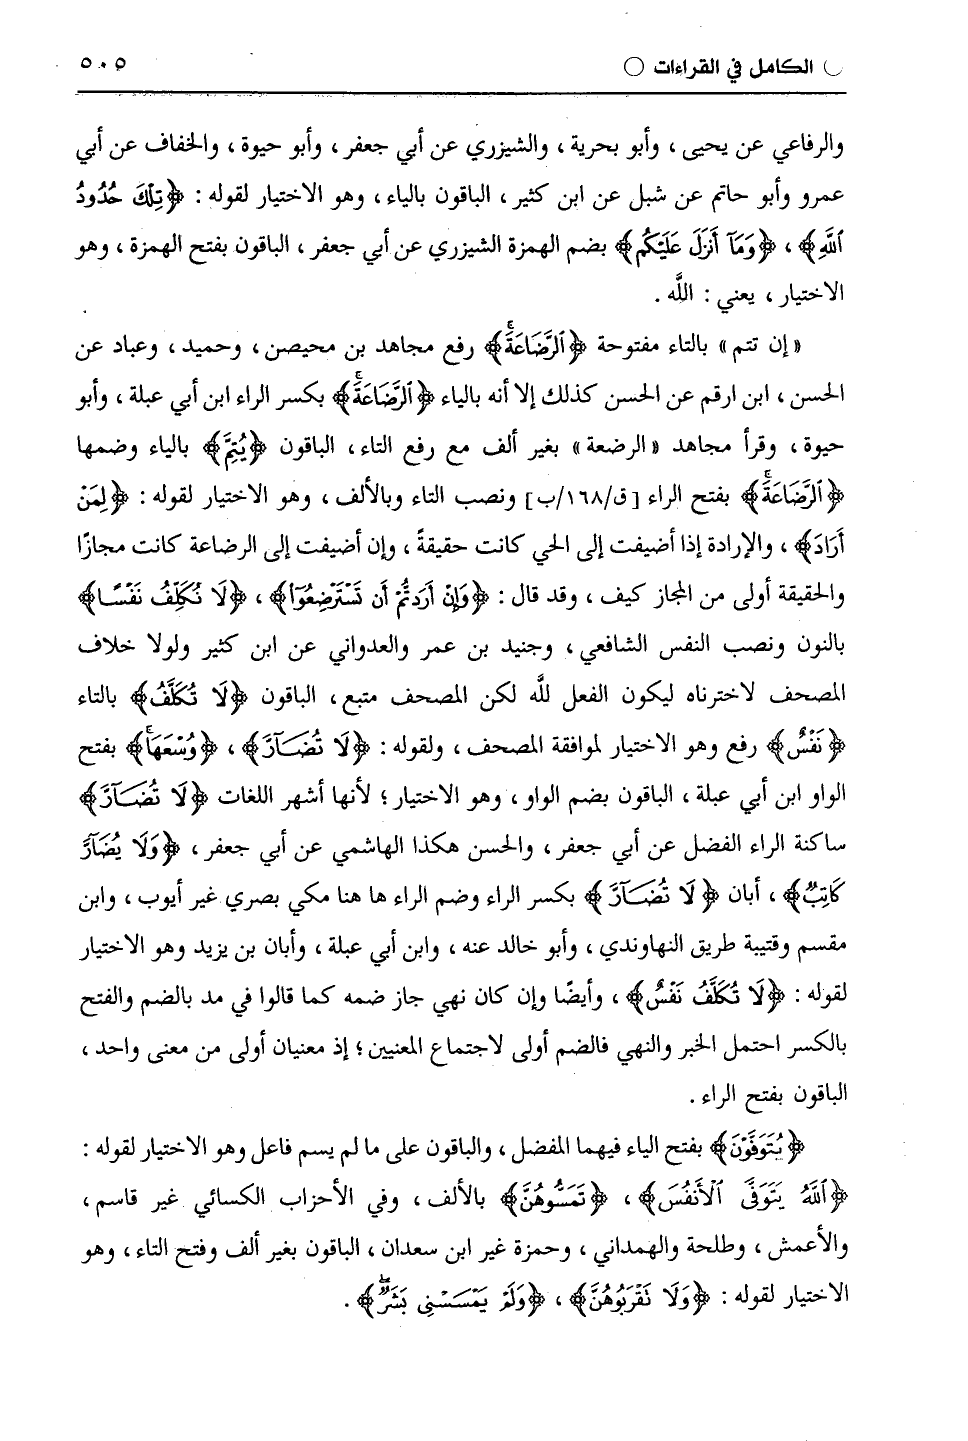 الكامل في القراءات ٥٠٥
والرفاعي عن يحيى ، وأبو بحرية ، والشيزري عن أبي جعفر ، وأبو حيوة ، والخفاف عن أبي
عمرو وأبو حاتم عن شبل عن ابن كثير ، الباقون بالياء ، وهو الاختيار لقوله : ﴿تِلْكَ حُدُودُ
ٱللَّهِ﴾ ، ﴿وَمَآ أَنزَلَ عَلَيْكُم﴾ بضم الهمزة الشيزري عن أبي جعفر ، الباقون بفتح الهمزة ، وهو
الاختيار ، يعني : اللَّه .
«إن تتم» بالتاء مفتوحة ﴿ٱلرَّضَاعَةَۚ﴾ رفع مجاهد بن محيصن ، وحميد ، وعباد عن
الحسن ، ابن ارقم عن الحسن كذلك إلا أنه بالياء ﴿ٱلرَّضَاعَةَۚ﴾ بكسر الراء ابن أبي عبلة ، وأبو
حيوة ، وقرأ مجاهد «الرضعة» بغير ألف مع رفع التاء ، الباقون ﴿يُتِمَّ﴾ بالياء وضمها
﴿ٱلرَّضَاعَةَۚ﴾ بفتح الراء [ق/١٦٨/ب] ونصب التاء وبالألف ، وهو الاختيار لقوله : ﴿لِمَنْ
أَرَادَ﴾ ، والإرادة إذا أضيفت إلى الحي كانت حقيقةً ، وإن أضيفت إلى الرضاعة كانت مجازًا
والحقيقة أولى من المجاز كيف ، وقد قال : ﴿وَإِنْ أَرَدتُّمْ أَن تَسْتَرْضِعُوٓا۟﴾ ، ﴿لَا نُكَلِّفُ نَفْسًا﴾
بالنون ونصب النفس الشافعي ، وجنيد بن عمر والعدواني عن ابن كثير ولولا خلاف
المصحف لاخترناه ليكون الفعل للَّه لكن المصحف متبع ، الباقون ﴿لَا تُكَلَّفُ﴾ بالتاء
﴿نَفْسٌ﴾ رفع وهو الاختيار لموافقة المصحف ، ولقوله : ﴿لَا تُضَآرَّ﴾ ، ﴿وُسْعَهَاۚ﴾ بفتح
الواو ابن أبي عبلة ، الباقون بضم الواو ، وهو الاختيار ؛ لأنها أشهر اللغات ﴿لَا تُضَآرَّ﴾
ساكنة الراء الفضل عن أبي جعفر ، والحسن هكذا الهاشمي عن أبي جعفر ، ﴿وَلَا يُضَآرَّ
كَاتِبٌ﴾ ، أبان ﴿لَا تُضَآرَّ﴾ بكسر الراء وضم الراء ها هنا مكي بصري غير أيوب ، وابن
مقسم وقتيبة طريق النهاوندي ، وأبو خالد عنه ، وابن أبي عبلة ، وأبان بن يزيد وهو الاختيار
لقوله : ﴿لَا تُكَلَّفُ نَفْسٌ﴾ ، وأيضًا وإن كان نهي جاز ضمه كما قالوا في مد بالضم والفتح
بالكسر احتمل الخبر والنهي فالضم أولى لاجتماع المعنيين ؛ إذ معنيان أولى من معنى واحد ،
الباقون بفتح الراء .
﴿يُتَوَفَّوْنَ﴾ بفتح الياء فيهما المفضل ، والباقون على ما لم يسم فاعل وهو الاختيار لقوله :
﴿ٱللَّهُ يَتَوَفَّى ٱلْأَنفُسَ﴾ ، ﴿تَمَسُّوهُنَّ﴾ بالألف ، وفي الأحزاب الكسائي غير قاسم ،
والأعمش ، وطلحة والهمداني ، وحمزة غير ابن سعدان ، الباقون بغير ألف وفتح التاء ، وهو
الاختيار لقوله : ﴿وَلَا تَقْرَبُوهُنَّ﴾ ، ﴿وَلَمْ يَمْسَسْنِى بَشَرٌۖ﴾ .